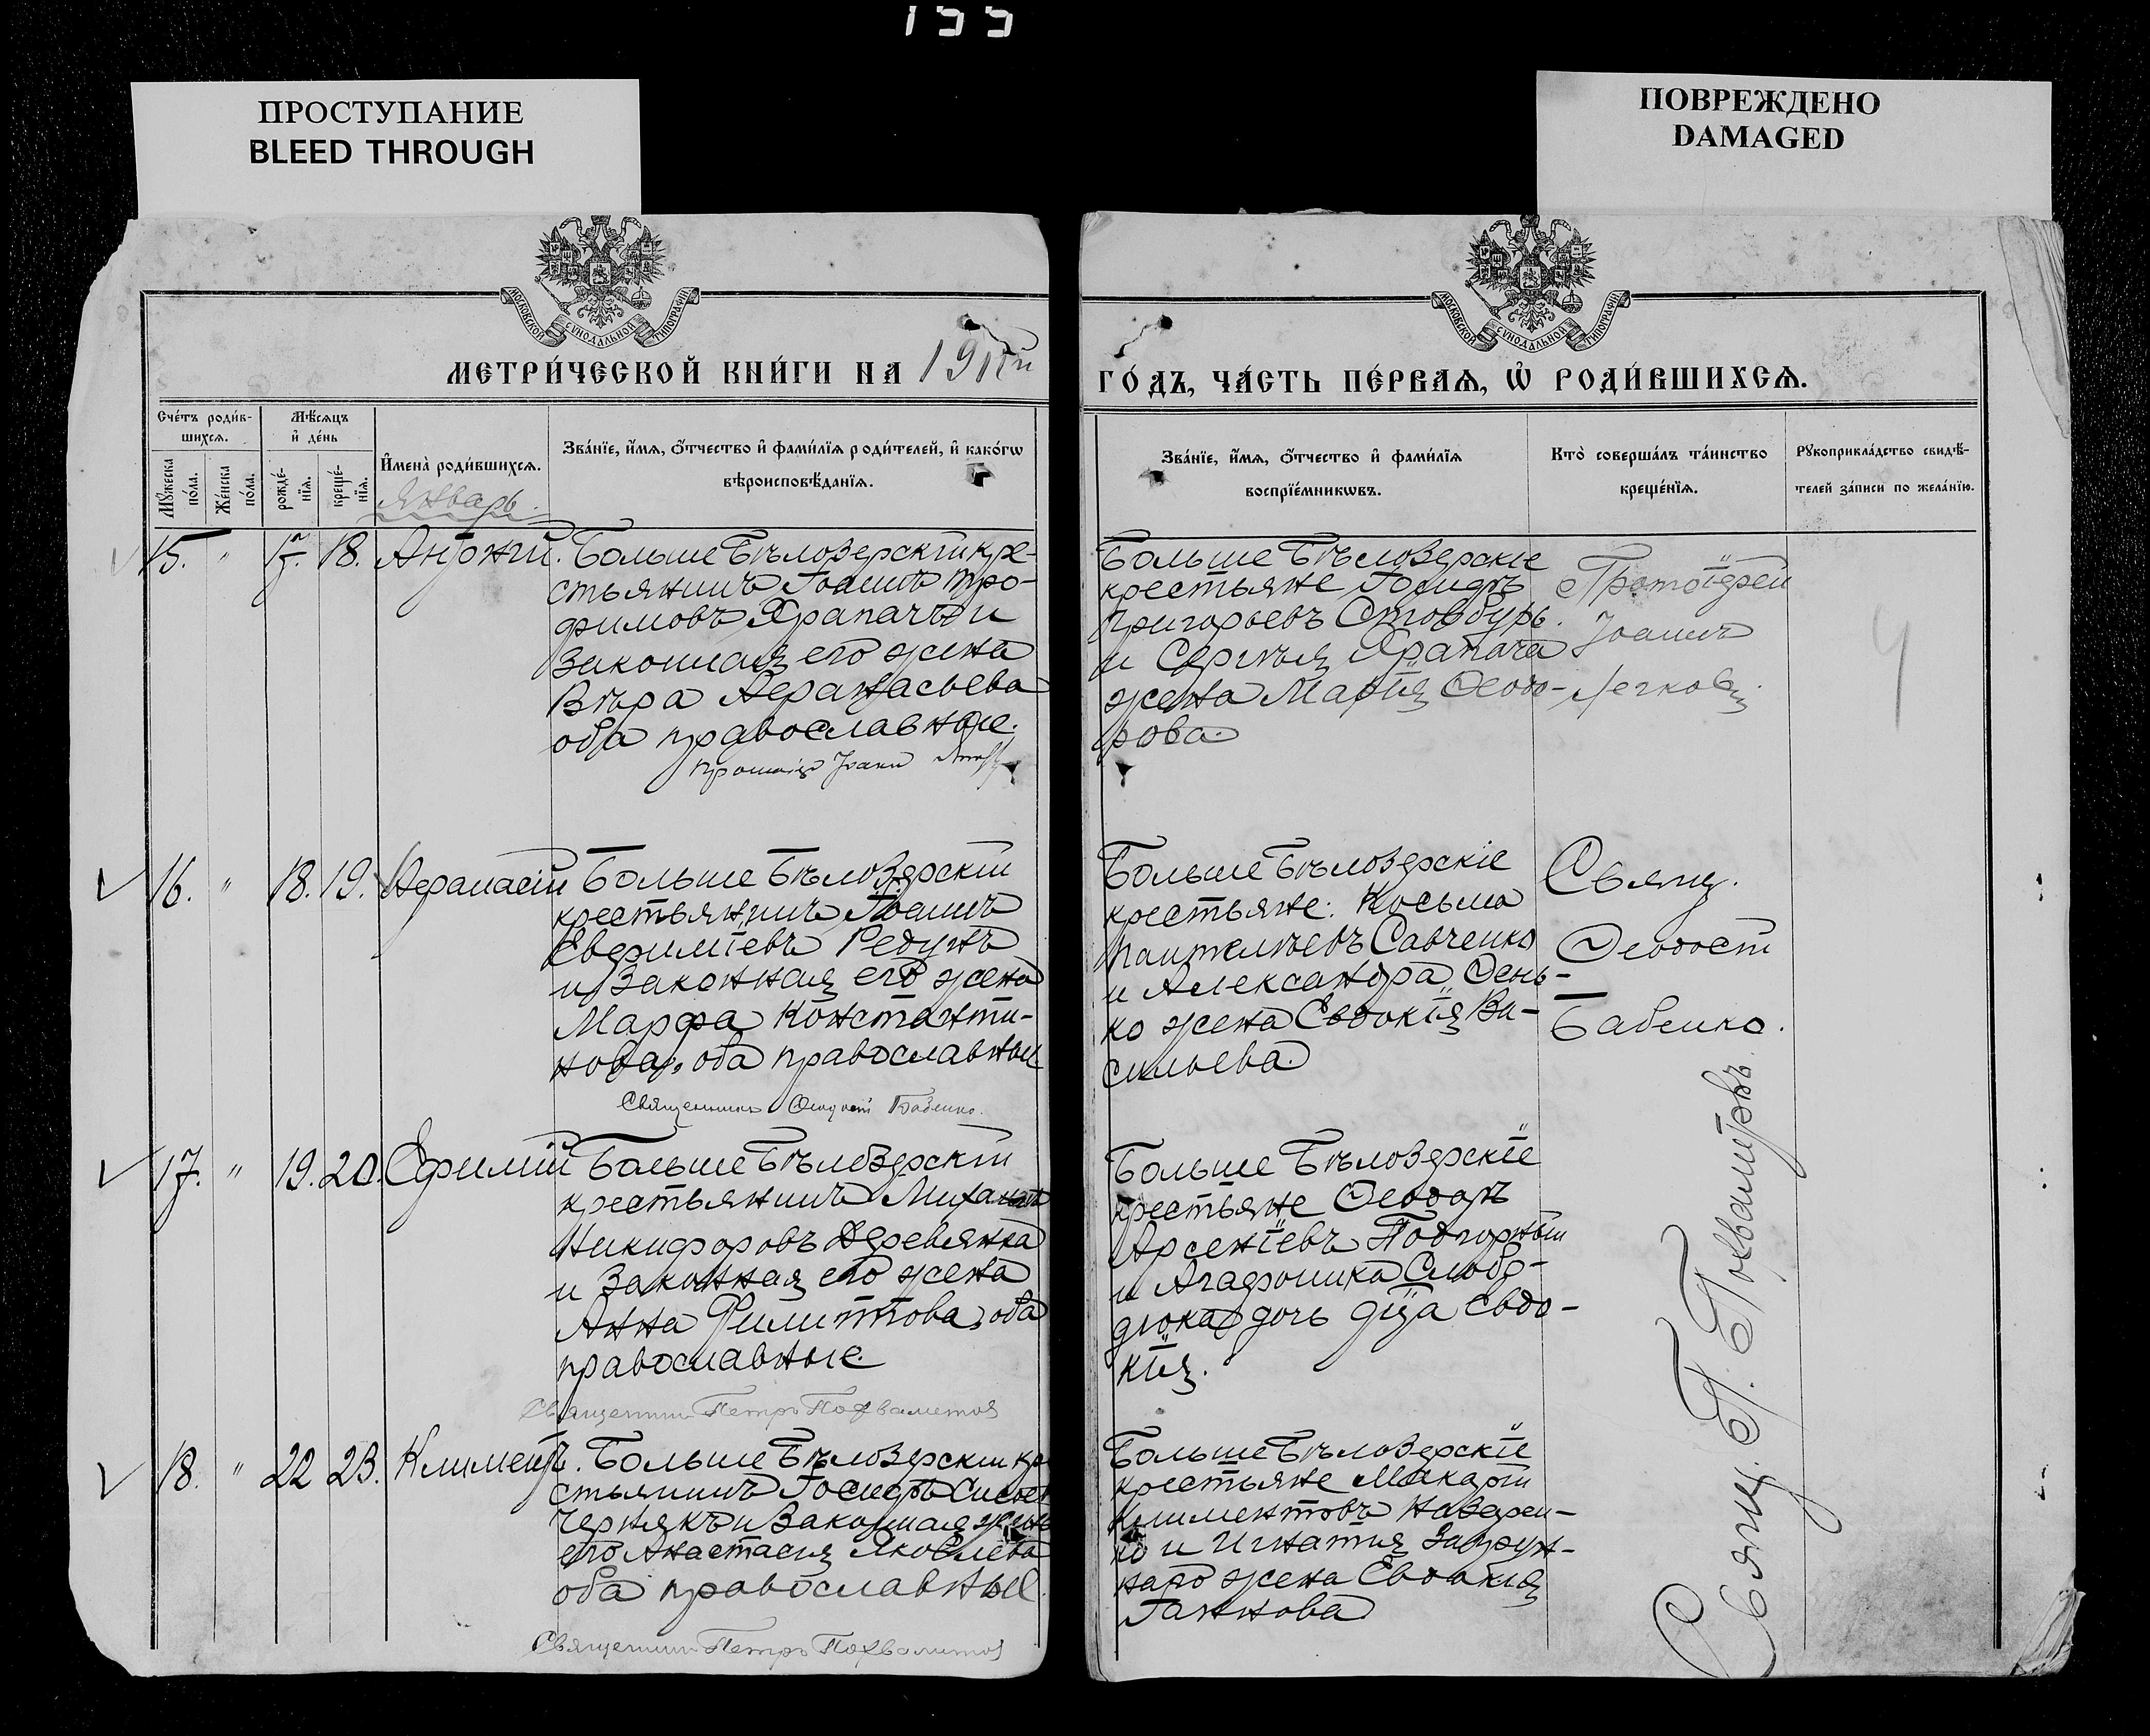 155
ПРОСТУПАНИЕ
BLEED THROUGH
ПОВРЕЖДЕНО
DAMAGED
МОСКОВСКОЙ СѴНОДАЛЬНОЙ ТИПОГРАФІИ
МОСКОВСКОЙ СѴНОДАЛЬНОЙ ТИПОГРАФІИ
МЕТРИ́ЧЕСКОЙ КНИ́ГИ НА
ГО́ДЪ, ЧА́СТЬ ПЕ́РВАѦ, Ѡ҆ РОДИ́ВШИХСѦ.
Сче́тъ роди́в-
шихсѧ.
Мѣ́сѧцъ
и҆ де́нь
Мꙋ́жеска
по́ла.
Же́нска
по́ла.
рожде́-
нїѧ.
креще́-
нїѧ.
И҆мена̀ роди́вшихсѧ.
Январь.
Зва́нїе, и҆́мѧ, ѻ҆́тчество и҆ фами́лїѧ роди́телей, и҆ како́гѡ
вѣроисповѣ́данїѧ.
Зва́нїе, и҆́мѧ, ѻ҆́тчество и҆ фами́лїѧ
воспрїе́мникѡвъ.
Кто̀ соверша́лъ та́инство
креще́нїѧ.
Рꙋкоприкла́дство свидѣ́-
телей за́писи по жела́нїю.
15. " 17. 18. Антоній. Больше Бѣлозерскій кре-
стьянинъ Іоаннъ Тро-
фимовъ Храпачъ и
законная его жена
Вѣра Аѳанасьева
оба православные.
Іоаннъ
Больше Бѣлозерскіе
крестьяне Іосифъ
Григорьевъ Стовбуръ
и Сергѣя Храпача
жена Марія Ѳеодо-
рова.
Протоіерей
Іоаннъ
4
16. " 18. 19. Аѳанасій Больше Бѣлозерскій
крестьянинъ Іоаннъ
Евфиміевъ Редунъ
и законная его жена
Марфа Константи-
нова, оба православные
Священникъ Ѳеодосій Бабенко.
Больше Бѣлозерскіе
крестьяне: Косьма
Пантелѣевъ Савченко
и Александра Сень-
ко жена Евдокія Ва-
сильева.
Свящ.
Ѳеодосій
Бабенко.
17. " 19. 20. Ефимій Больше Бѣлозерскій
крестьянинъ Михаилъ
Никифоровъ Деревянка
и законная его жена
Анна Филиппова, оба
православные.
Священник Петръ Похвалитовъ
Больше Бѣлозерскіе
крестьяне Ѳеодоръ
Арсеніевъ Подгорный
и Агафоника Слобо-
дюка дочь дѣва Евдо-
кія.
18. " 22 23. Климентъ. Больше Бѣлозерскій кре
стьянинъ Іосифъ
Чернякъ и законная жена
его Анастасія Яковлева
оба православные.
Священник Петръ Похвалитовъ
Больше Бѣлозерскіе
крестьяне Макарій
Климентовъ Назарен-
ко и Игнатія
жена Евдокія
Іаннова
Свящ. П. Похвалитовъ